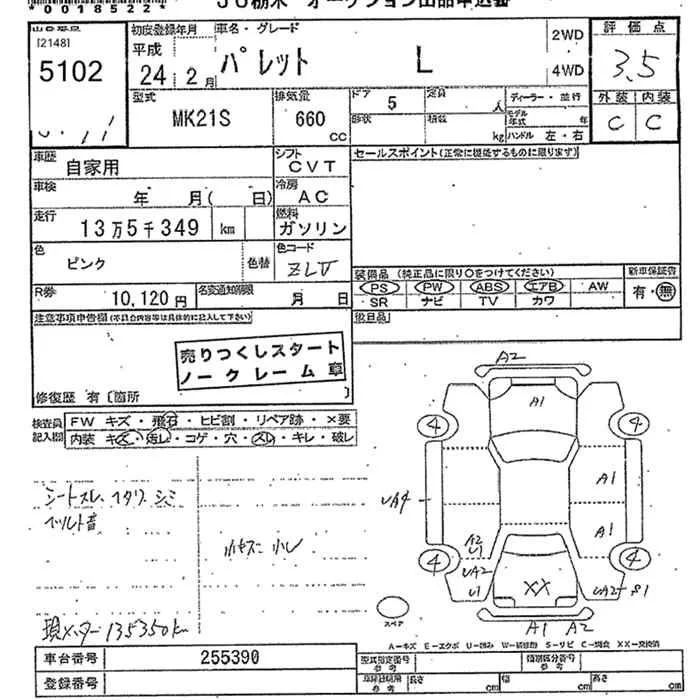 *0018522*
JU栃木 オークション出品申込書
[2148]
5102
初度登録年月
平成
24 年 2 月
車名・グレード
パレット L
2WD
4WD
評価点
3.5
外装 内装
C C
型式
MK21S
排気量
660 CC
ドア 5
定員 人
形状
積載 kg
ディーラー・並行
モデル年式 年
ハンドル 左・右
車歴 自家用
シフト CVT
セールスポイント(正常に機能するものに限ります)
車検 年 月( 日)
冷房 AC
走行 13万5千349 km
燃料 ガソリン
色 ピンク 色替
色コード ZLV
装備品(純正品に限り○をつけてください)
新車保証書
PS PW ABS エアB AW
有・無
SR ナビ TV カワ
R券 10,120円
名変通知期限 月 日
注意事項申告欄(不具合内容等は具体的に記入して下さい)
後日品
売りつくしスタート
ノークレーム車
修復歴 有〔箇所 〕
検査員記入欄
FW キズ・飛石・ヒビ割・リペア跡・×要
内装 キズ・汚レ・コゲ・穴・スレ・キレ・破レ
シートスレ、ヘタリ、シミ
ベルト音
現メーター 135350k
A2
A1
4 4
A1
UA4
A1
A2
U1
4 4
UA2
U1
XX
UA2 S1
A1 A2
スペア
A―キズ E―エクボ U―凹み W―補修跡 S―サビ C―腐食 XX―交換済
車台番号 255390
登録番号
型式指定番号参考
類別区分番号参考
車検証記載参考
長さ cm
幅 cm
高さ cm